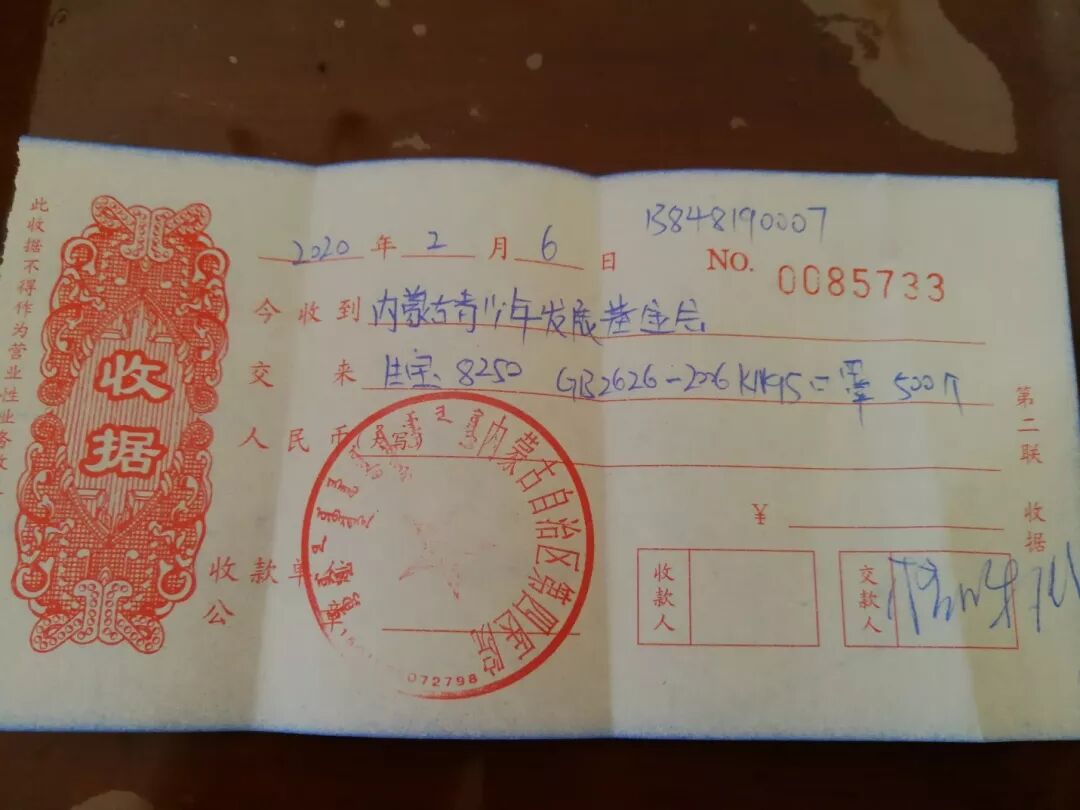 13848190007
2020 年 2 月 6 日
NO. 0085733
今收到 内蒙古青少年发展基金会
交来 8250 GB2626-2006 KN95 500个
人民币(大写)
¥
收款单
公章
收款人
交款人
收据
此收据不得作为营业性业务收
第二联 收据
内蒙古自治区第四医院
072798